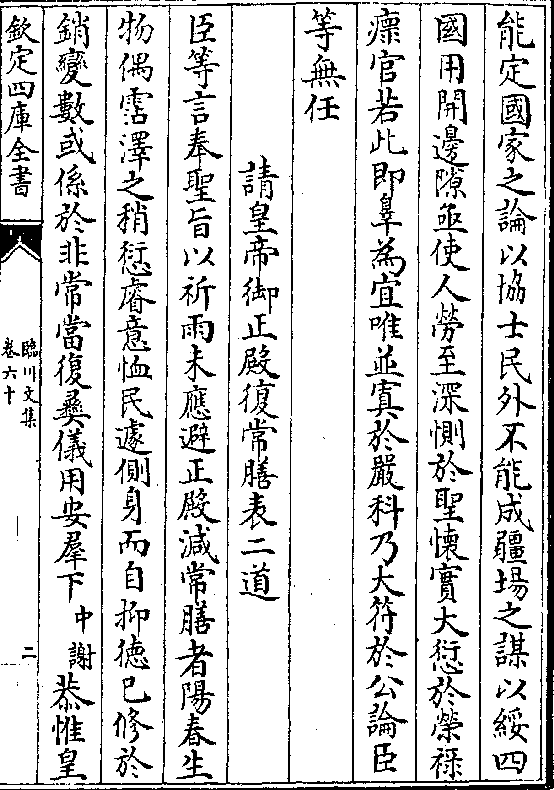 能定國家之論以協士民外不能成疆場之謀以綏四
國用開邊隙亟使人勞至深惻於聖懷實大愆於榮祿
瘝官若此即辠為宜唯並寘於嚴科乃大符於公論臣
等無任
請皇帝御正殿復常膳表二道
臣等言奉聖旨以祈雨未應避正殿減常膳者陽春生
物偶雪澤之稍愆睿意恤民遽側身而自抑德已修於
銷變數或係於非常當復彝儀用安羣下中謝恭惟皇
欽定四庫全書
臨川文集
卷六十
二